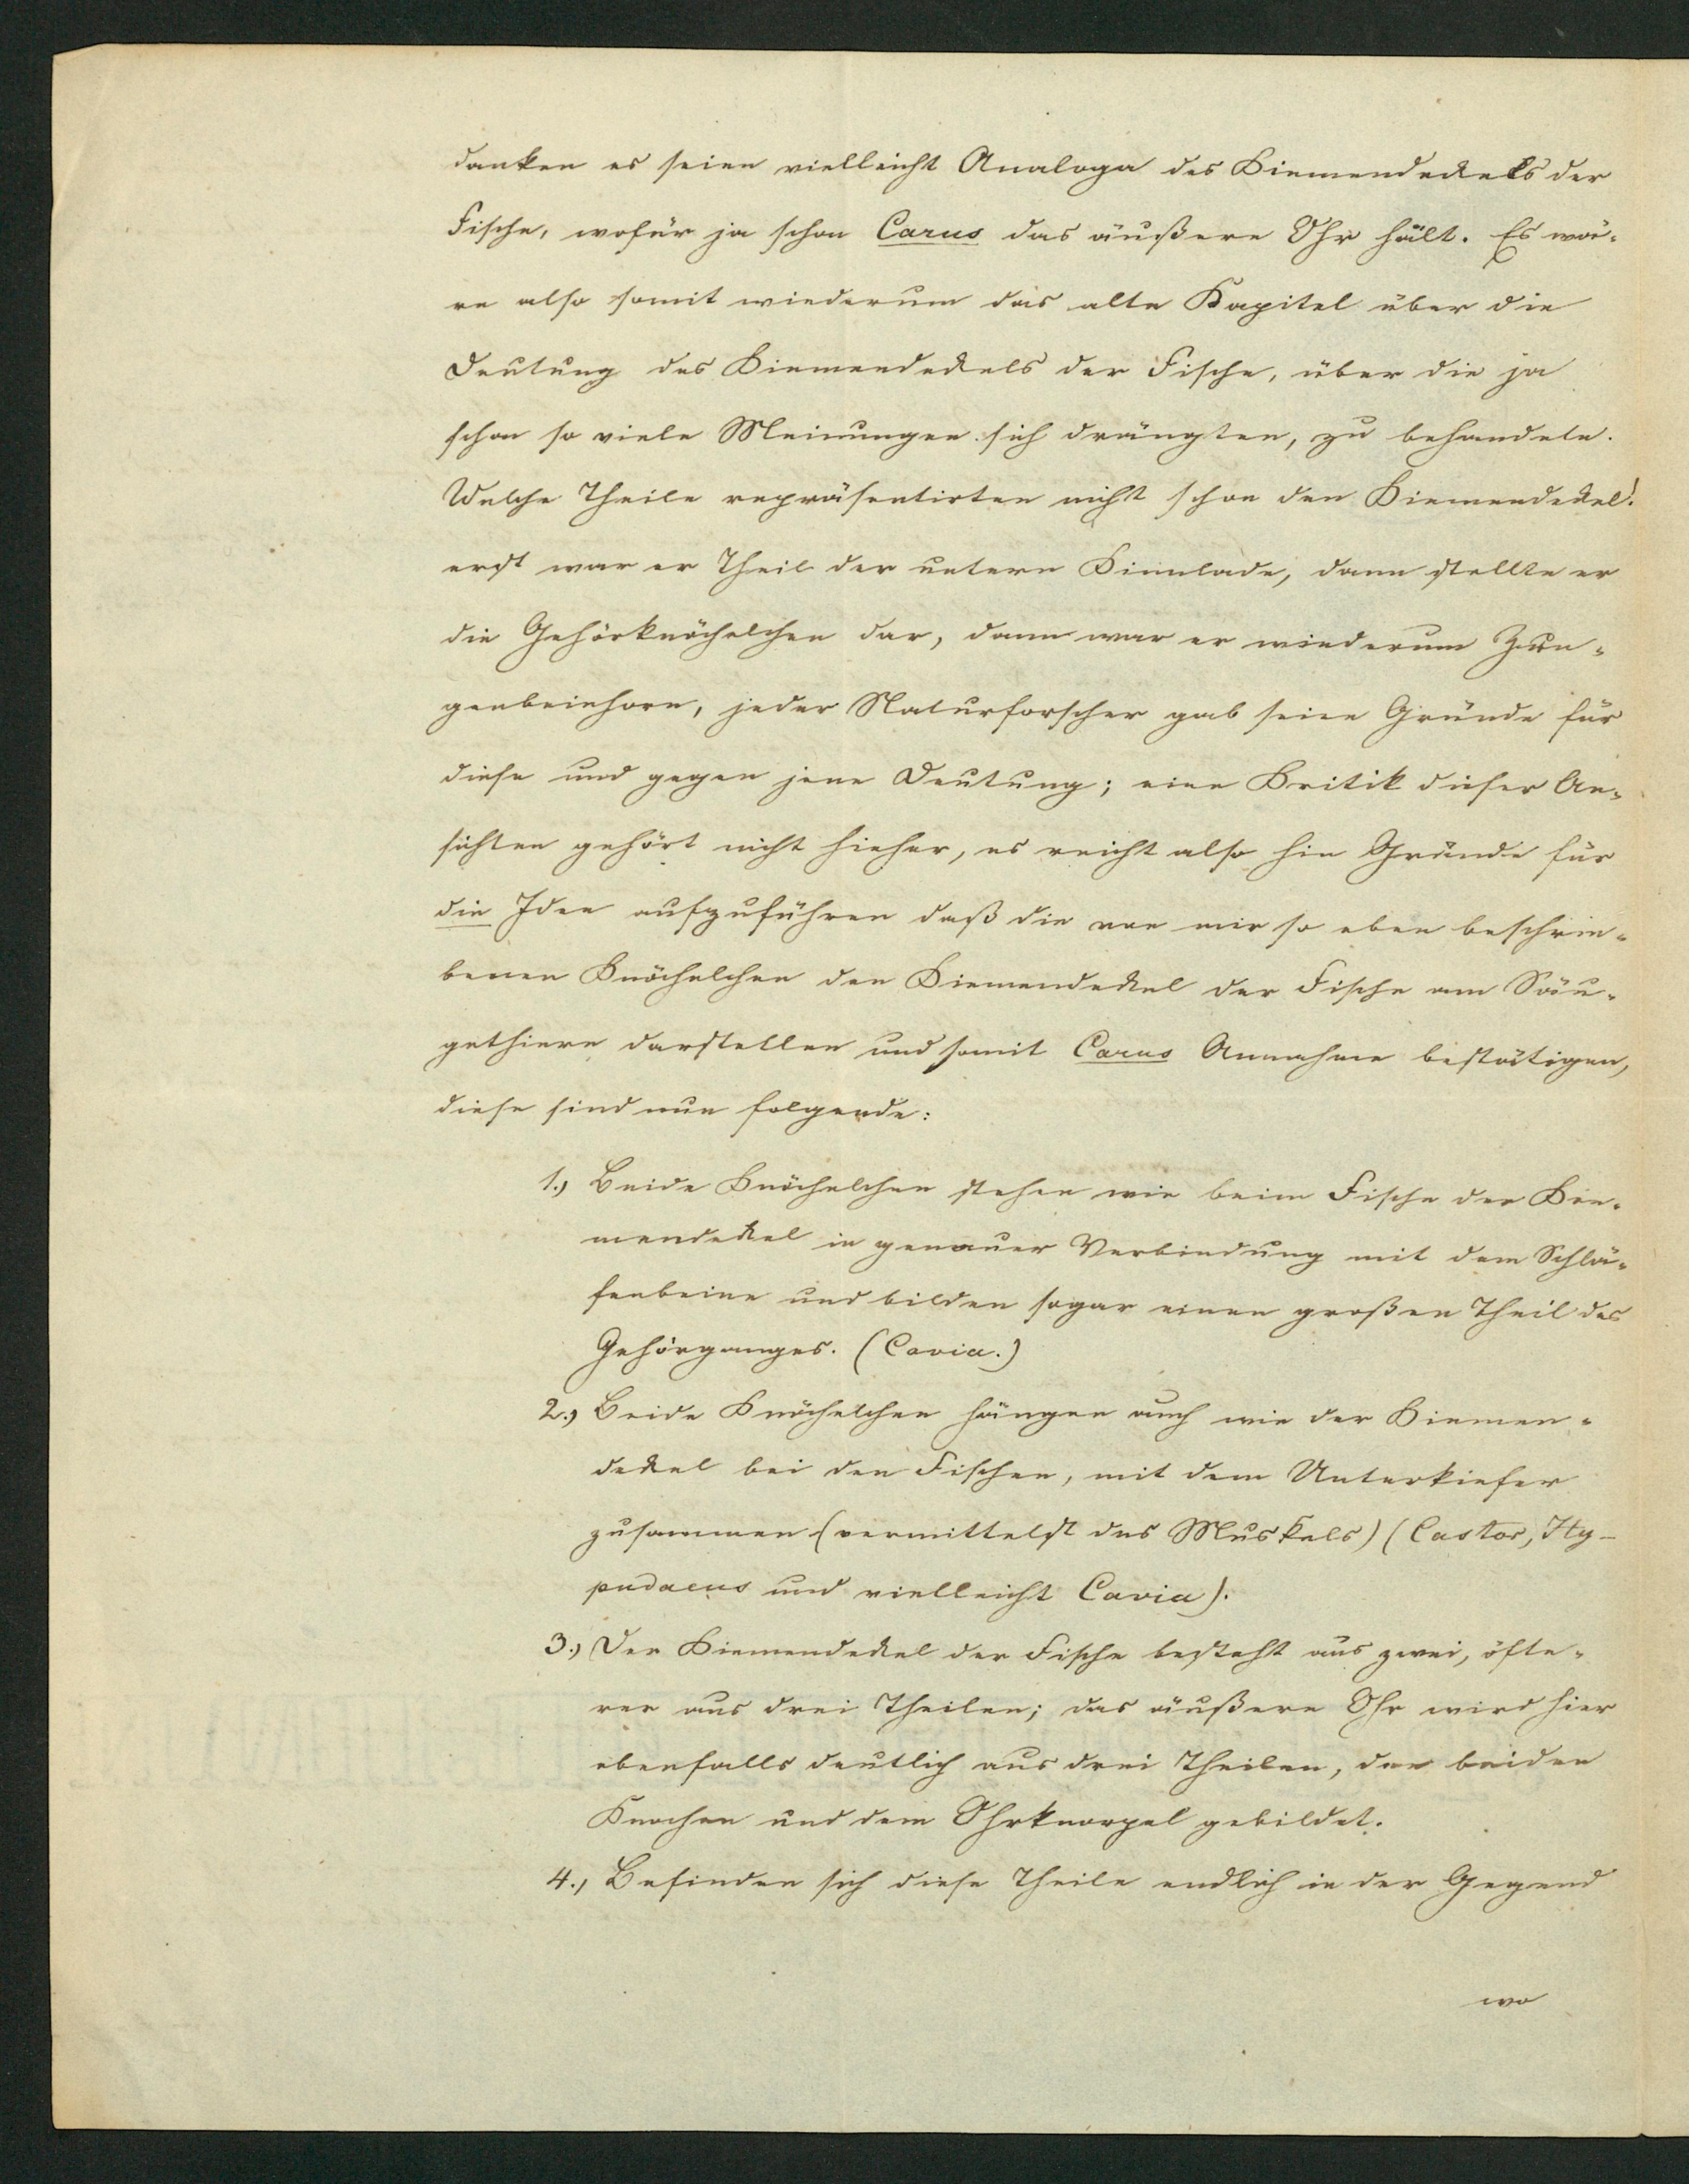 danken es seien vielleicht Analoga des Kiemendekels der
Fische, wofür ja schon Carus das äußere Ohr hält. Es wä-
re also somit wiederum das alte Kapitel über die
Deutung des Kiemendekels der Fische, über die ja
schon so viele Meinungen sich drängten, zu behandeln.
Welche Theile repräsentirten nicht schon den Kiemendekel!
erst war er Theil der untern Kinnlade, dann stellte er
die Gehörknöchelchen dar, dann war er wiederum Zun-
genbeinhorn, jeder Naturforscher gab seine Gründe für
diese und gegen jene Deutung; eine Kritik dieser An-
sichten gehört nicht hieher, es reicht also hin Gründe für
die Idee aufzuführen daß die von mir so eben beschrie-
benen Knöchelchen den Kiemendekel der Fische am Säu-
gethiere darstellen und somit Carus Annahme bestätigen,
diese sind nun folgende:
1.) Beide Knöchelchen stehen wie beim Fische der Kie-
mendekel in genauer Verbindung mit dem Schlä-
fenbeine und bilden sogar einen großen Theil des
Gehörganges. (Cavia.)
2.) Beide Knöchelchen hängen auch wie der Kiemen-
dekel bei den Fischen, mit dem Unterkiefer
zusammen (vermittelst des Muskels) (Castor, Hy-
pudaeus und vielleicht Cavia).
3.) Der Kiemendekel der Fische besteht aus zwei, öfte-
rer aus drei Theilen; das äußere Ohr wird hier
ebenfalls deutlich aus drei Theilen, den beiden
Knochen und dem Ohrknorpel gebildet.
4.) Befinden sich diese Theile endlich in der Gegend
wo